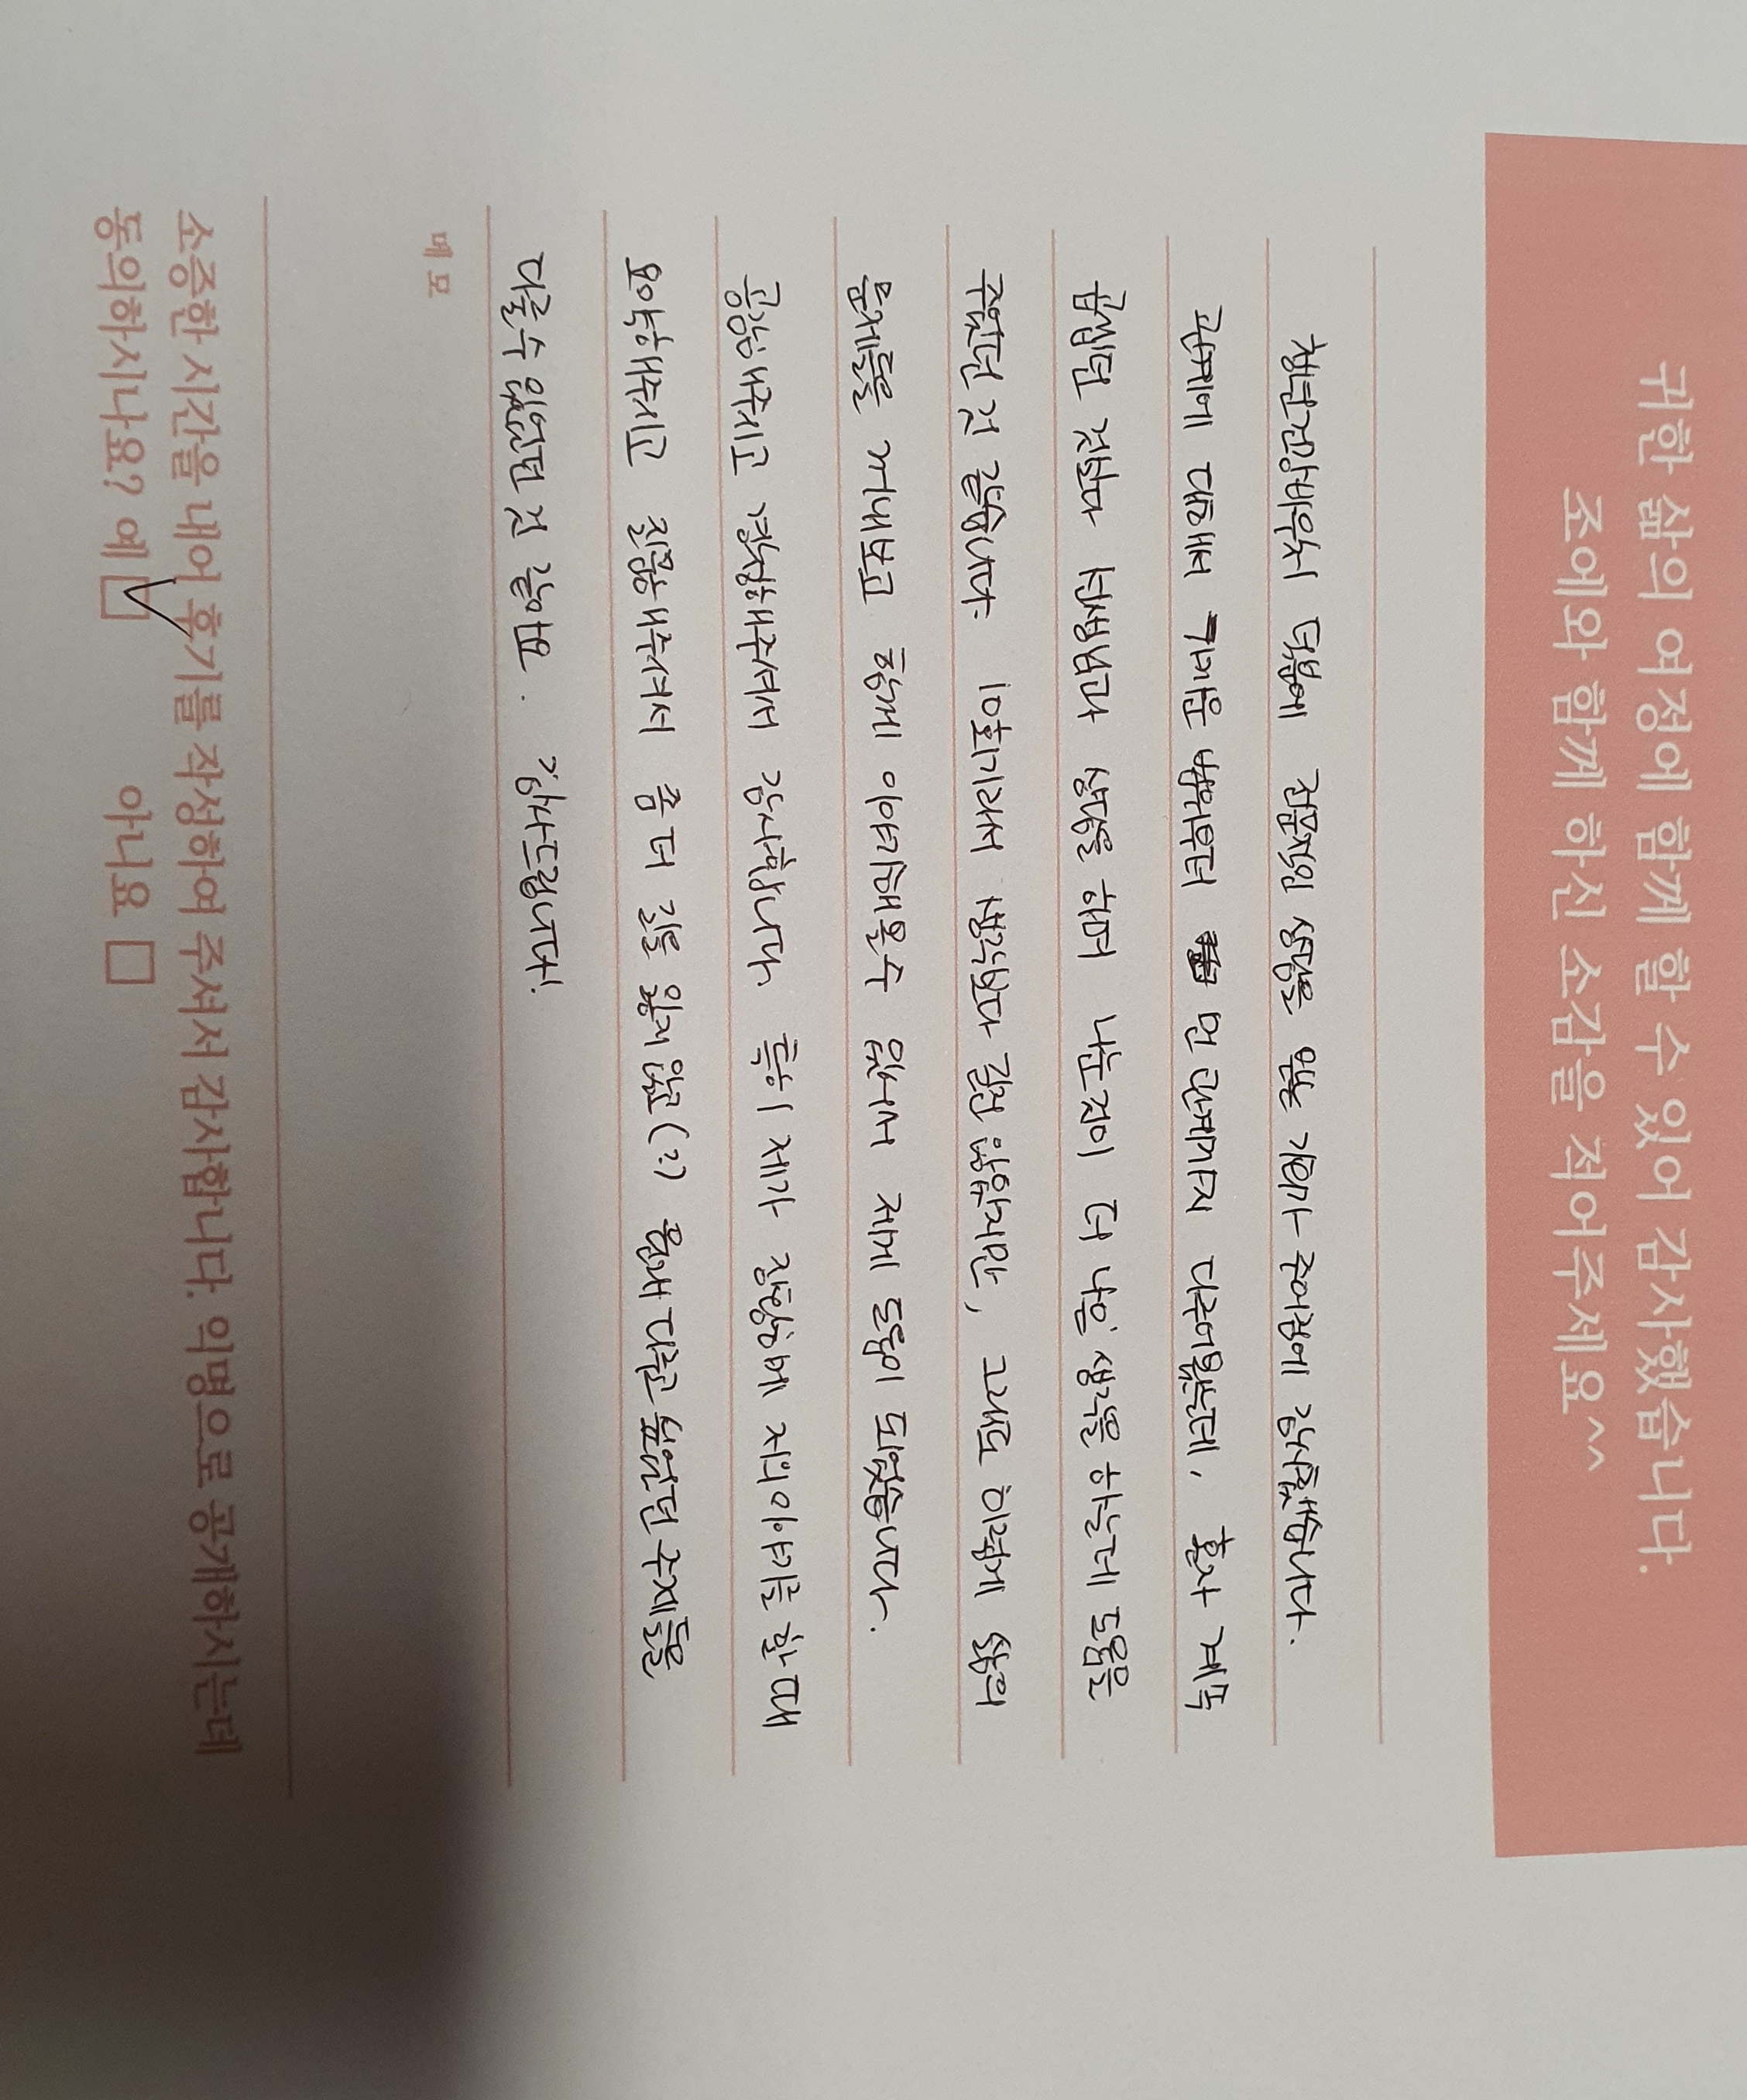 귀한 삶의 여정에 함께 할 수 있어 감사했습니다.
조에와 함께 하신 소감을 적어주세요^^
청년건강바우처 덕분에 전문적인 상담을 받는 기회가 주어짐에 감사했습니다.
관계에 대해서 가까운 범위부터 먼 관계까지 다루어봤는데, 혼자 계속
곱씹던 것보다 선생님과 상담을 하며 나눈것이 더 나은 생각을 하는데 도움을
주었던 것 같습니다. 10회기라서 생각보다 길진 않았지만, 그래도 이렇게 삶의
문제들을 꺼내보고 함께 이야기해볼수 있어서 제게 도움이 되었습니다.
공감해주시고 경청해주셔서 감사합니다. 특히 제가 장황하게 저의이야기를 할 때
요약해주시고 질문해주셔서 좀 더 길을 잃지 않고(?) 원래 다루고 싶었던 주제들을
다룰수 있었던 것 같아요. 감사드립니다!
메모
소중한 시간을 내어 후기를 작성하여 주셔서 감사합니다. 익명으로 공개하시는데
동의하시나요? 예 아니요